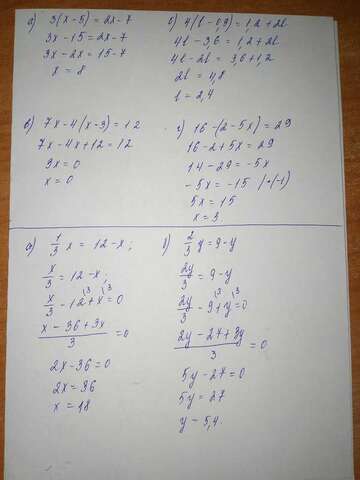 а) 3(x-5)=2x-7
3x-15=2x-7
3x-2x=15-7
x=8
б) 4(l-0,9)=1,2+2l
4l-3,6=1,2+2l
4l-2l=3,6+1,2
2l=4,8
l=2,4
в) 7x-4(x-3)=12
7x-4x+12=12
3x=0
x=0
г) 16-(2-5x)=29
16-2+5x=29
14-29=-5x
-5x=-15 |·(-1)
5x=15
x=3
а) 1/3 x = 12-x;
x/3 = 12-x;
x/3 - 12(3 + x(3 = 0
(x-36+3x)/3 = 0
2x-36=0
2x=36
x=18
б) 2/3 y = 9-y
2y/3 = 9-y
2y/3 - 9(3 + y(3 = 0
(2y-27+3y)/3 = 0
5y-27=0
5y=27
y-5,4.